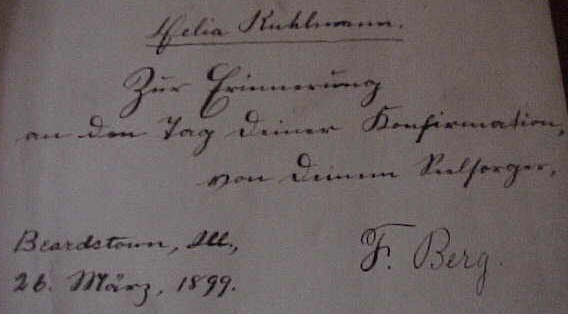 Kuhlmann.
Zur Erinnerung
an den Tag deiner Konfirmation,
von deinem Seelsorger,
Beardstown, Ill.,
F. Berg.
26. März, 1899.